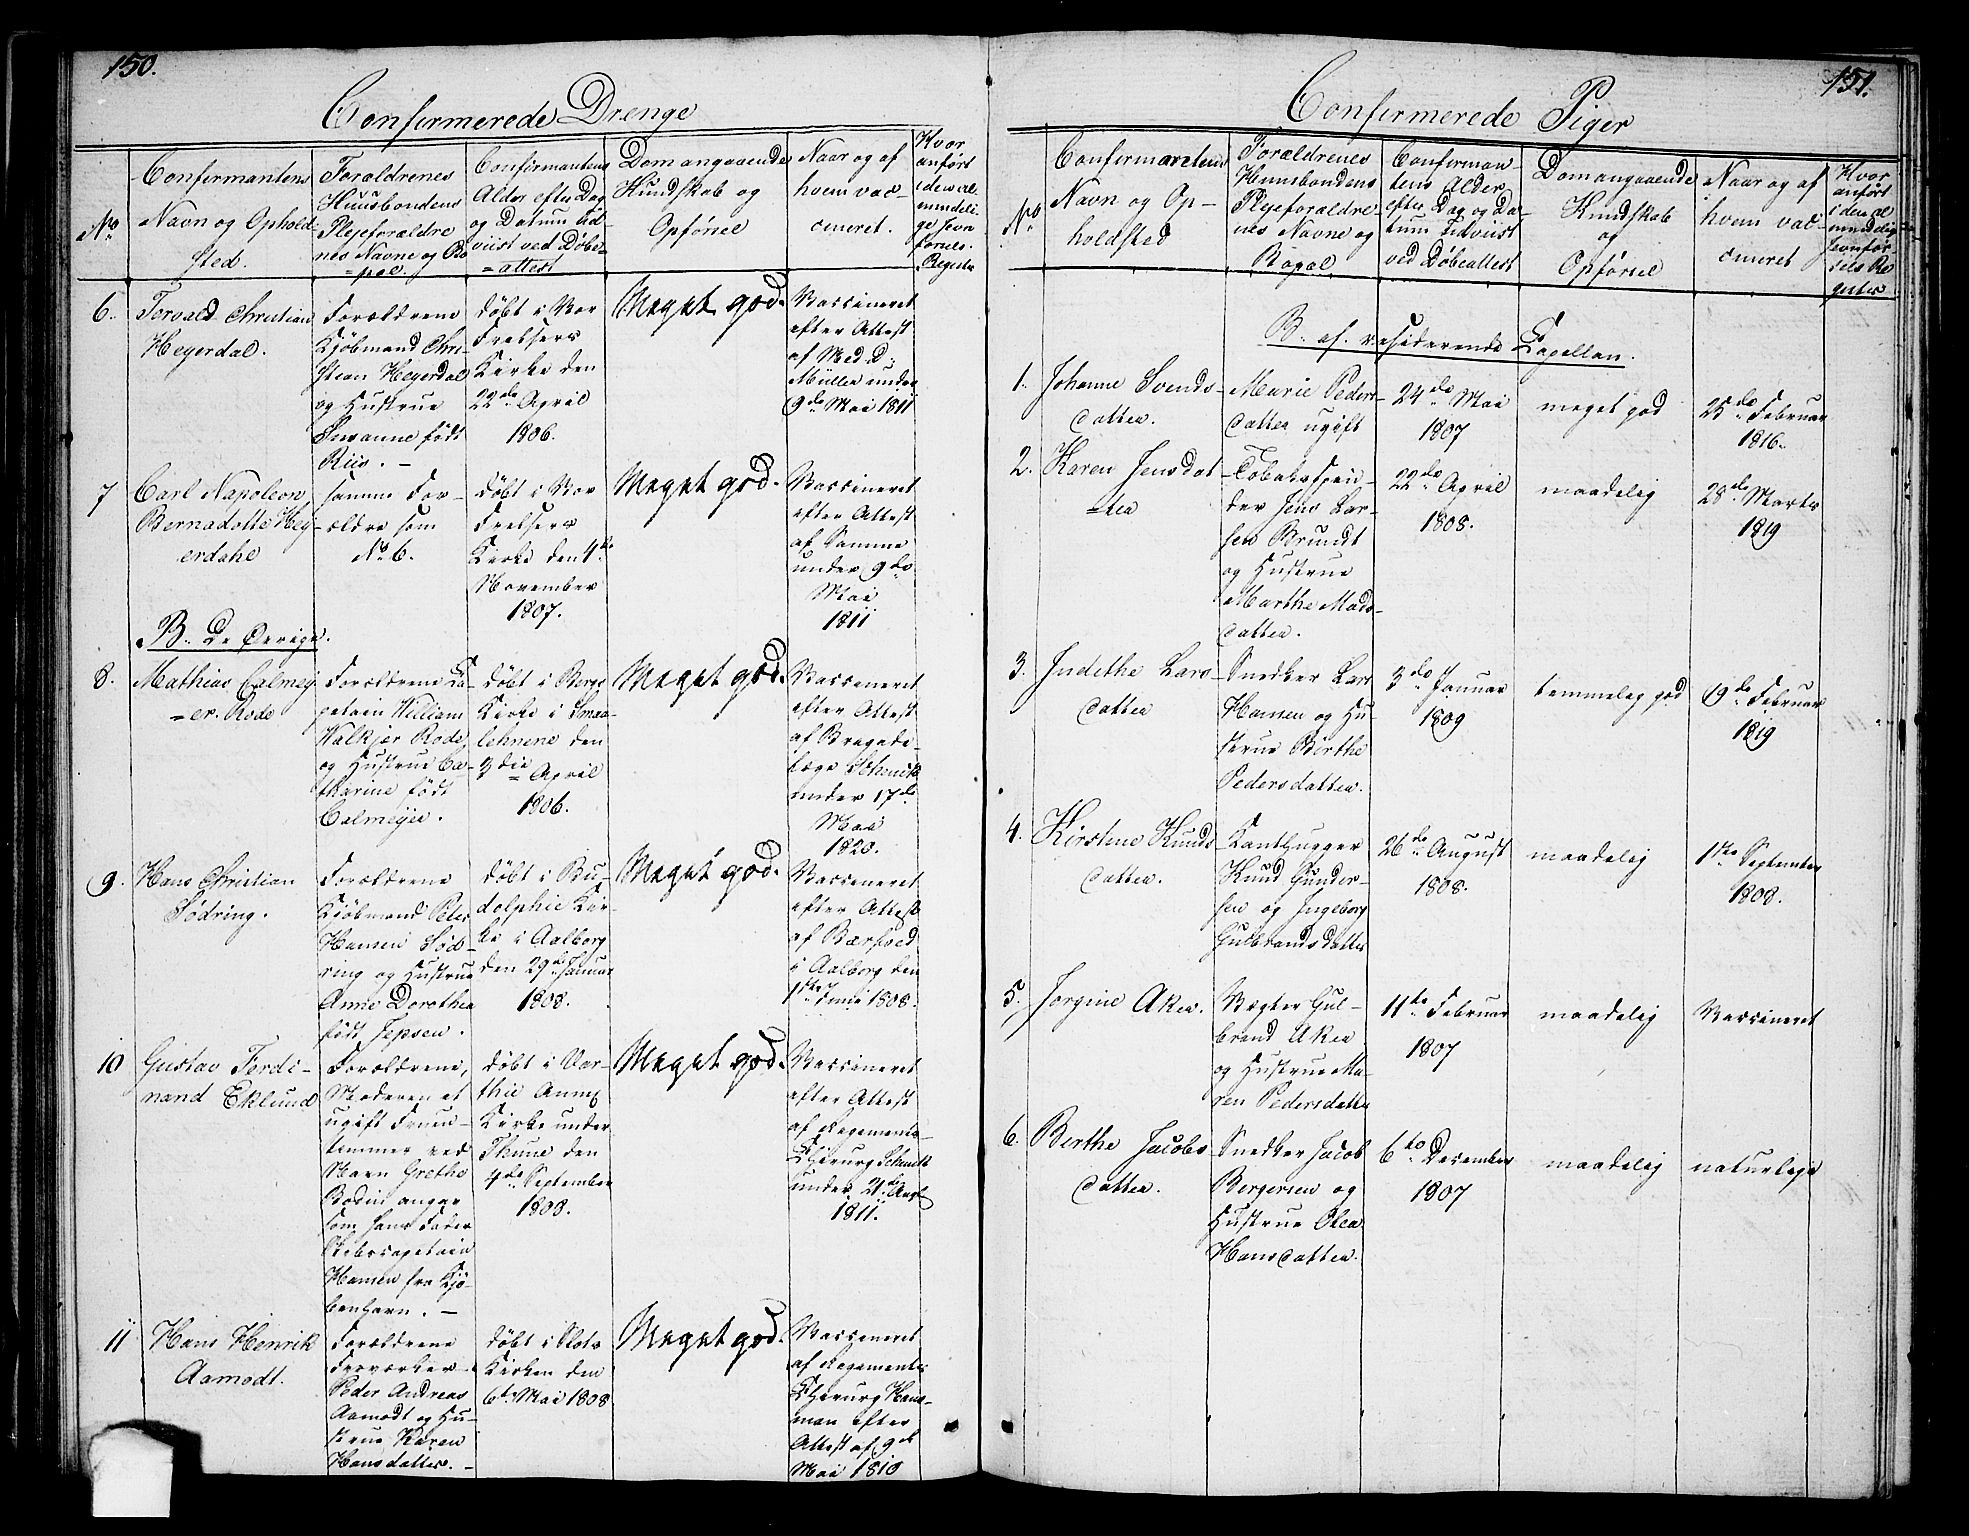 150.
Confirmerede Drenge
No
Confirmantens
Navn og Ophold-
sted.
Forældrenes
Huusbondens
Plejeforældre
nes Navne og Bo
=pæl.
Confirmantens
Alder efter Dag
og Datum tid-
viist ved Døbe-
=attest
Dom angaaende
Kundskab og
Opførsel
Naar og af
hvem vac-
cineret.
Hvor
anført
i den al
mindeli-
ge Jevn
førsels-
Register
6.
Torvald Christian
Heyerdal.
Forældrene
Kjøbmand Chri-
stian Heyerdal
og Hustrue
Susanne født
Riis. -
døbt i Vor
Frelsers
Kirke den
22de April
1806.
Meget god.
Vaccineret
efter Attest
af Med. D.
Müller under
9de Mai 1811
7
Carl Napoleon
Bernadotte Hey-
erdahl
samme For-
ældre som
No 6.
døbt i Vor
Frelsers
Kirke den 4de
November
1807.
Meget god.
Vaccineret
efter Attest
af Samme
under 9de
Mai
1811
B. De Øvrige.
8.
Mathias Calmey
=er. Rode
Forældrene Ca-
pitain William
Walkjer Rode,
og Hustrue Ca-
tharine født
Calmeyer.
døbt i Bergs
Kirke i Smaa-
lehnene den
3die April
1806.
Meget god.
Vaccineret
efter Attest
af Brigade-
læge Schenck
under 17de
Mai
1820.
9.
Hans Christian
Sødring.
Forældrene
Kjøbmand Peter
Hansen Sød-
ring og Hustrue
Anne Dorothea
født Jepsen.
døbt i Bu-
dolphie Kir-
ke i Aalborg
den 29de Januar
1808.
Meget god.
Vaccineret
efter Attest
af Bærfoed
i Aalborg den
1ste Juni 1808.
10
Gustav Ferdi-
nand Eklund
Forældrene,
Moderen et
ugift Fruen-
timmer ved
Navn Grethe
Bodin angav
som hans Fader
Stabscapitain
Hansen fra Kjø-
benhavn. -
døbt i
Kirke under
Thune den
4de September
1808.
Meget god.
Vaccineret
efter Attest
af Regiments-
Chirurg Schenck
under 21de Augt
1811.
11
Hans Henrik
Aamodt.
Forældrene
Peder Andreas
Aamodt og Hu-
strue Karen
Hansdatter. -
døbt i Slots
Kirken den
6te Mai 1808
Meget god.
Vaccineret
af Regiments
Chirurg Hans-
man efter
Attest af 9de
Mai 1810
151.
Confirmerede Piger
No
Confirmantens
Navn og Op-
holdsted
Forældrenes
Huusbondens
Plejeforældre-
nes Navne og
Bopæl
Confirman-
tens Alder
efter Dag og Da-
tum tidviist
ved Døbeattest
Dom angaaende
Kundskab
og
Opførsel
Naar og af
hvem vac-
cineret
Hvor
anført
i den al
mindelig
Jevnfør
sels Re
gister
B. af residerende Capellan.
1.
Johanne Svends-
datter.
Marie Peders-
datter ugift
24de Mai
1807
meget god
25de Februar
1816.
2.
Karen Jensdat
=ter
Tobaksspin-
der Jens Lar-
sen Brundt
og Hustrue
Marthe Mads-
datter.
22de April
1808.
maadelig
28de Marts
1819
3.
Indithe Lars-
datter
Snedker Lars
Hansen og Hu-
strue Birthe
Pedersdatter.
3de Januar
1809
temmelig god
19de Februar
1819
4.
Kirstine Knuds
datter.
Kanthugger
Knud Gunder-
sen og Ingeborg
Gulbrandsdatter
26de August
1808.
maadelig
1ste September
1808.
5.
Jorgine Aker.
Vægter Gul-
brand Aker
og Hustrue Ma-
ren Pedersdatter
11te Februar
1807
maadelig
Vaccineret
6.
Berthe Jacobs
datter.
Snedker Jacob
Bergersen og
Hustrue Olea
Hansdatter.
6te December
1807
maadelig
naturlige